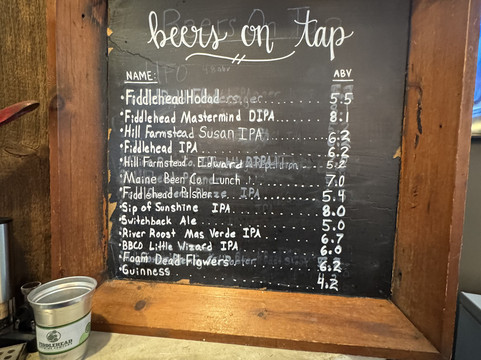 beers on tap
NAME: ABV
·Fiddlehead Hodad 5.5
·Fiddlehead Mastermind DIPA 8.1
·Hill Farmstead Susan IPA 6.2
·Fiddlehead IPA 6.2
·Hill Farmstead Edward 5.2
·Maine Beer Co Lunch 7.0
·Fiddlehead Pilsner 5.4
·Sip of Sunshine IPA 8.0
·Switchback Ale 5.0
·River Roost Mas Verde IPA 6.7
·BBCO Little Wizard IPA 6.0
·Foam Dead Flowers 6.2
·Guinness 4.2
FIDDLEHEAD